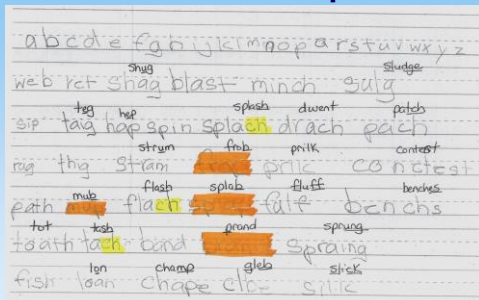 a b c d e f g h i j k l m n o p q r s t u v w x y z
shug sludge
web ret shag blast minch sulg
teg hep splash dwent patch
sip taig hap spin splach drach pach
strum frob prilk contest
rag thig stram prlic conctest
mub flash splob fluff benches
path flach falf benchs
tot tosh prand sprung
toath tach band spraing
lon champ gleb slick
fish loan chape clbe silic